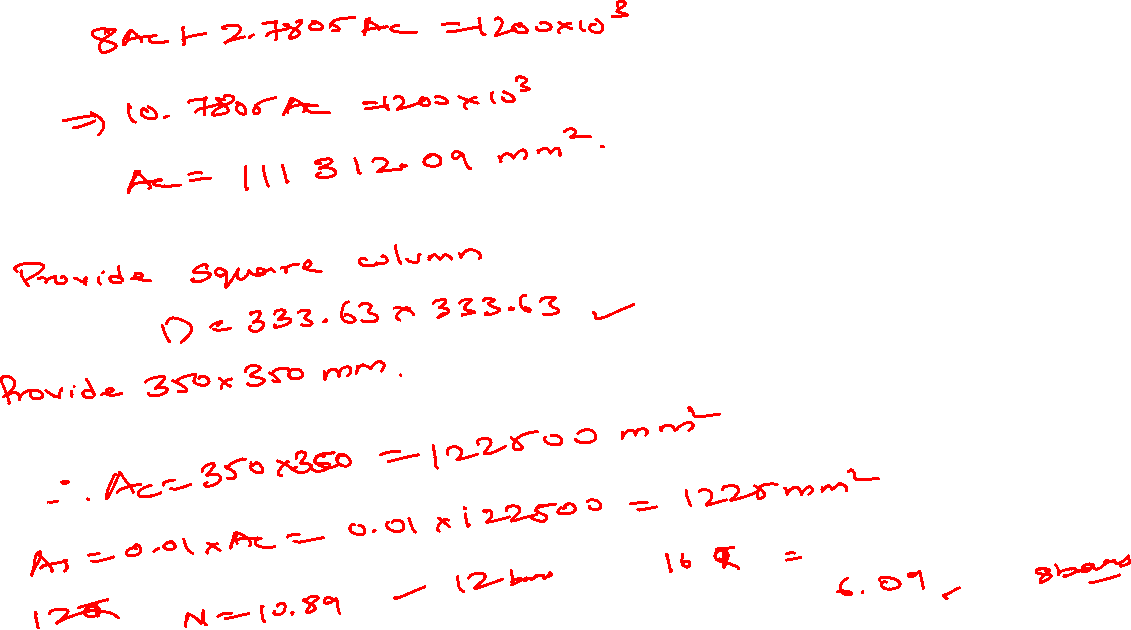 8Ac + 2.7805 Ac = 1200×10³
⇒ 10.7805 Ac = 1200×10³
Ac = 111312.09 mm².
Provide square column
D = 333.63 × 333.63 ✓
Provide 350×350 mm.
∴ Ac = 350×350 = 122500 mm²
As = 0.01×Ac = 0.01×122500 = 1225 mm²
12 N = 10.89 – 12 bars 16 = 6.09, 8 bars